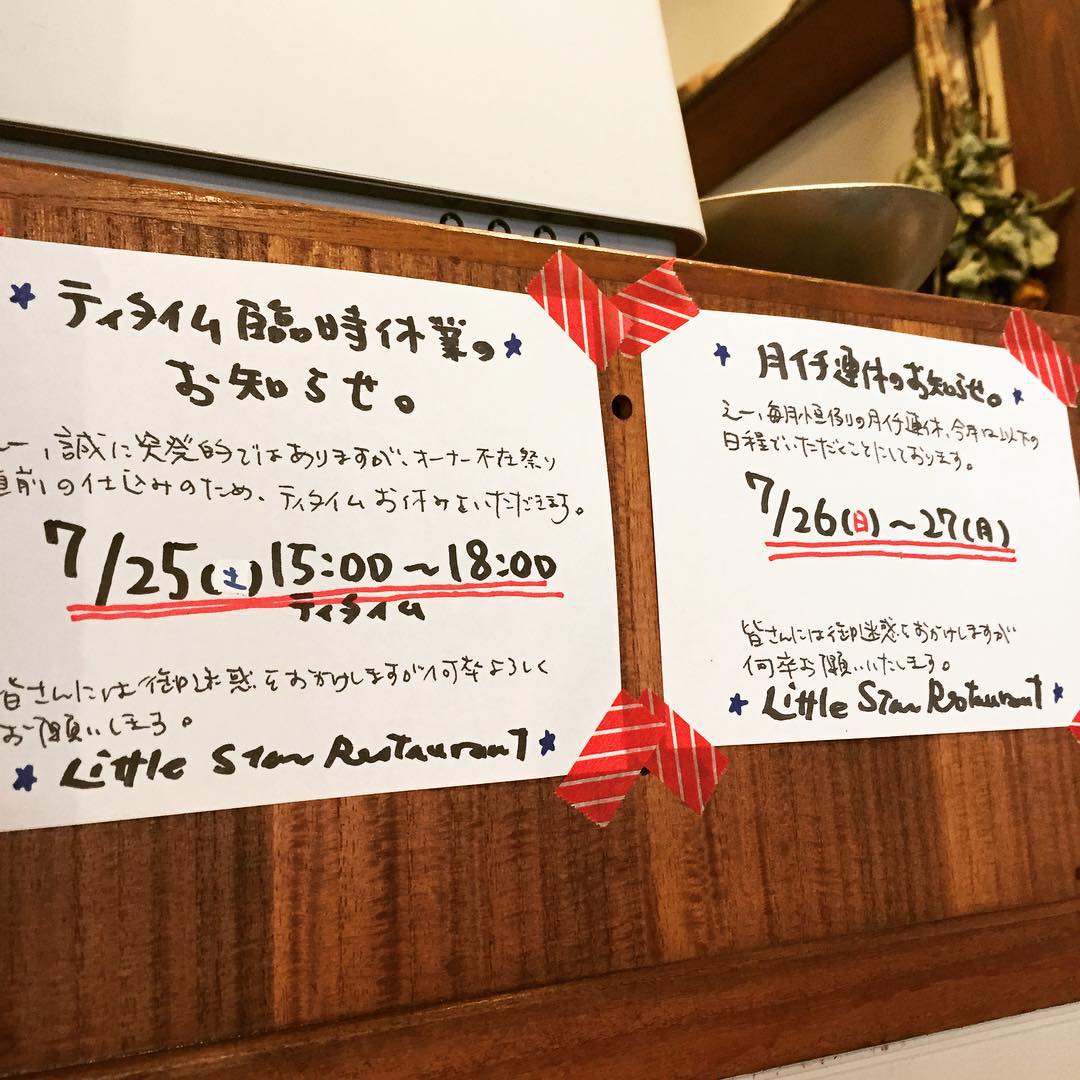 ★ ティタイム臨時休業の ★
お知らせ。
えー、誠に突発的ではありますが、オーナー不在祭り
直前の仕込みのため、ティタイムお休みをいただきます。
7/25(土)15:00〜18:00
ティタイム
皆さんには御迷惑をおかけしますが何卒よろしく
お願いします。
★ Little Star Restaurant ★
★ 月イチ連休のお知らせ。 ★
えー、毎月恒例の月イチ連休、今月は以下の
日程でいただくことにしております。
7/26(日)〜27(月)
皆さんには御迷惑をおかけしますが
何卒お願いいたします。
★ Little Star Restaurant ★